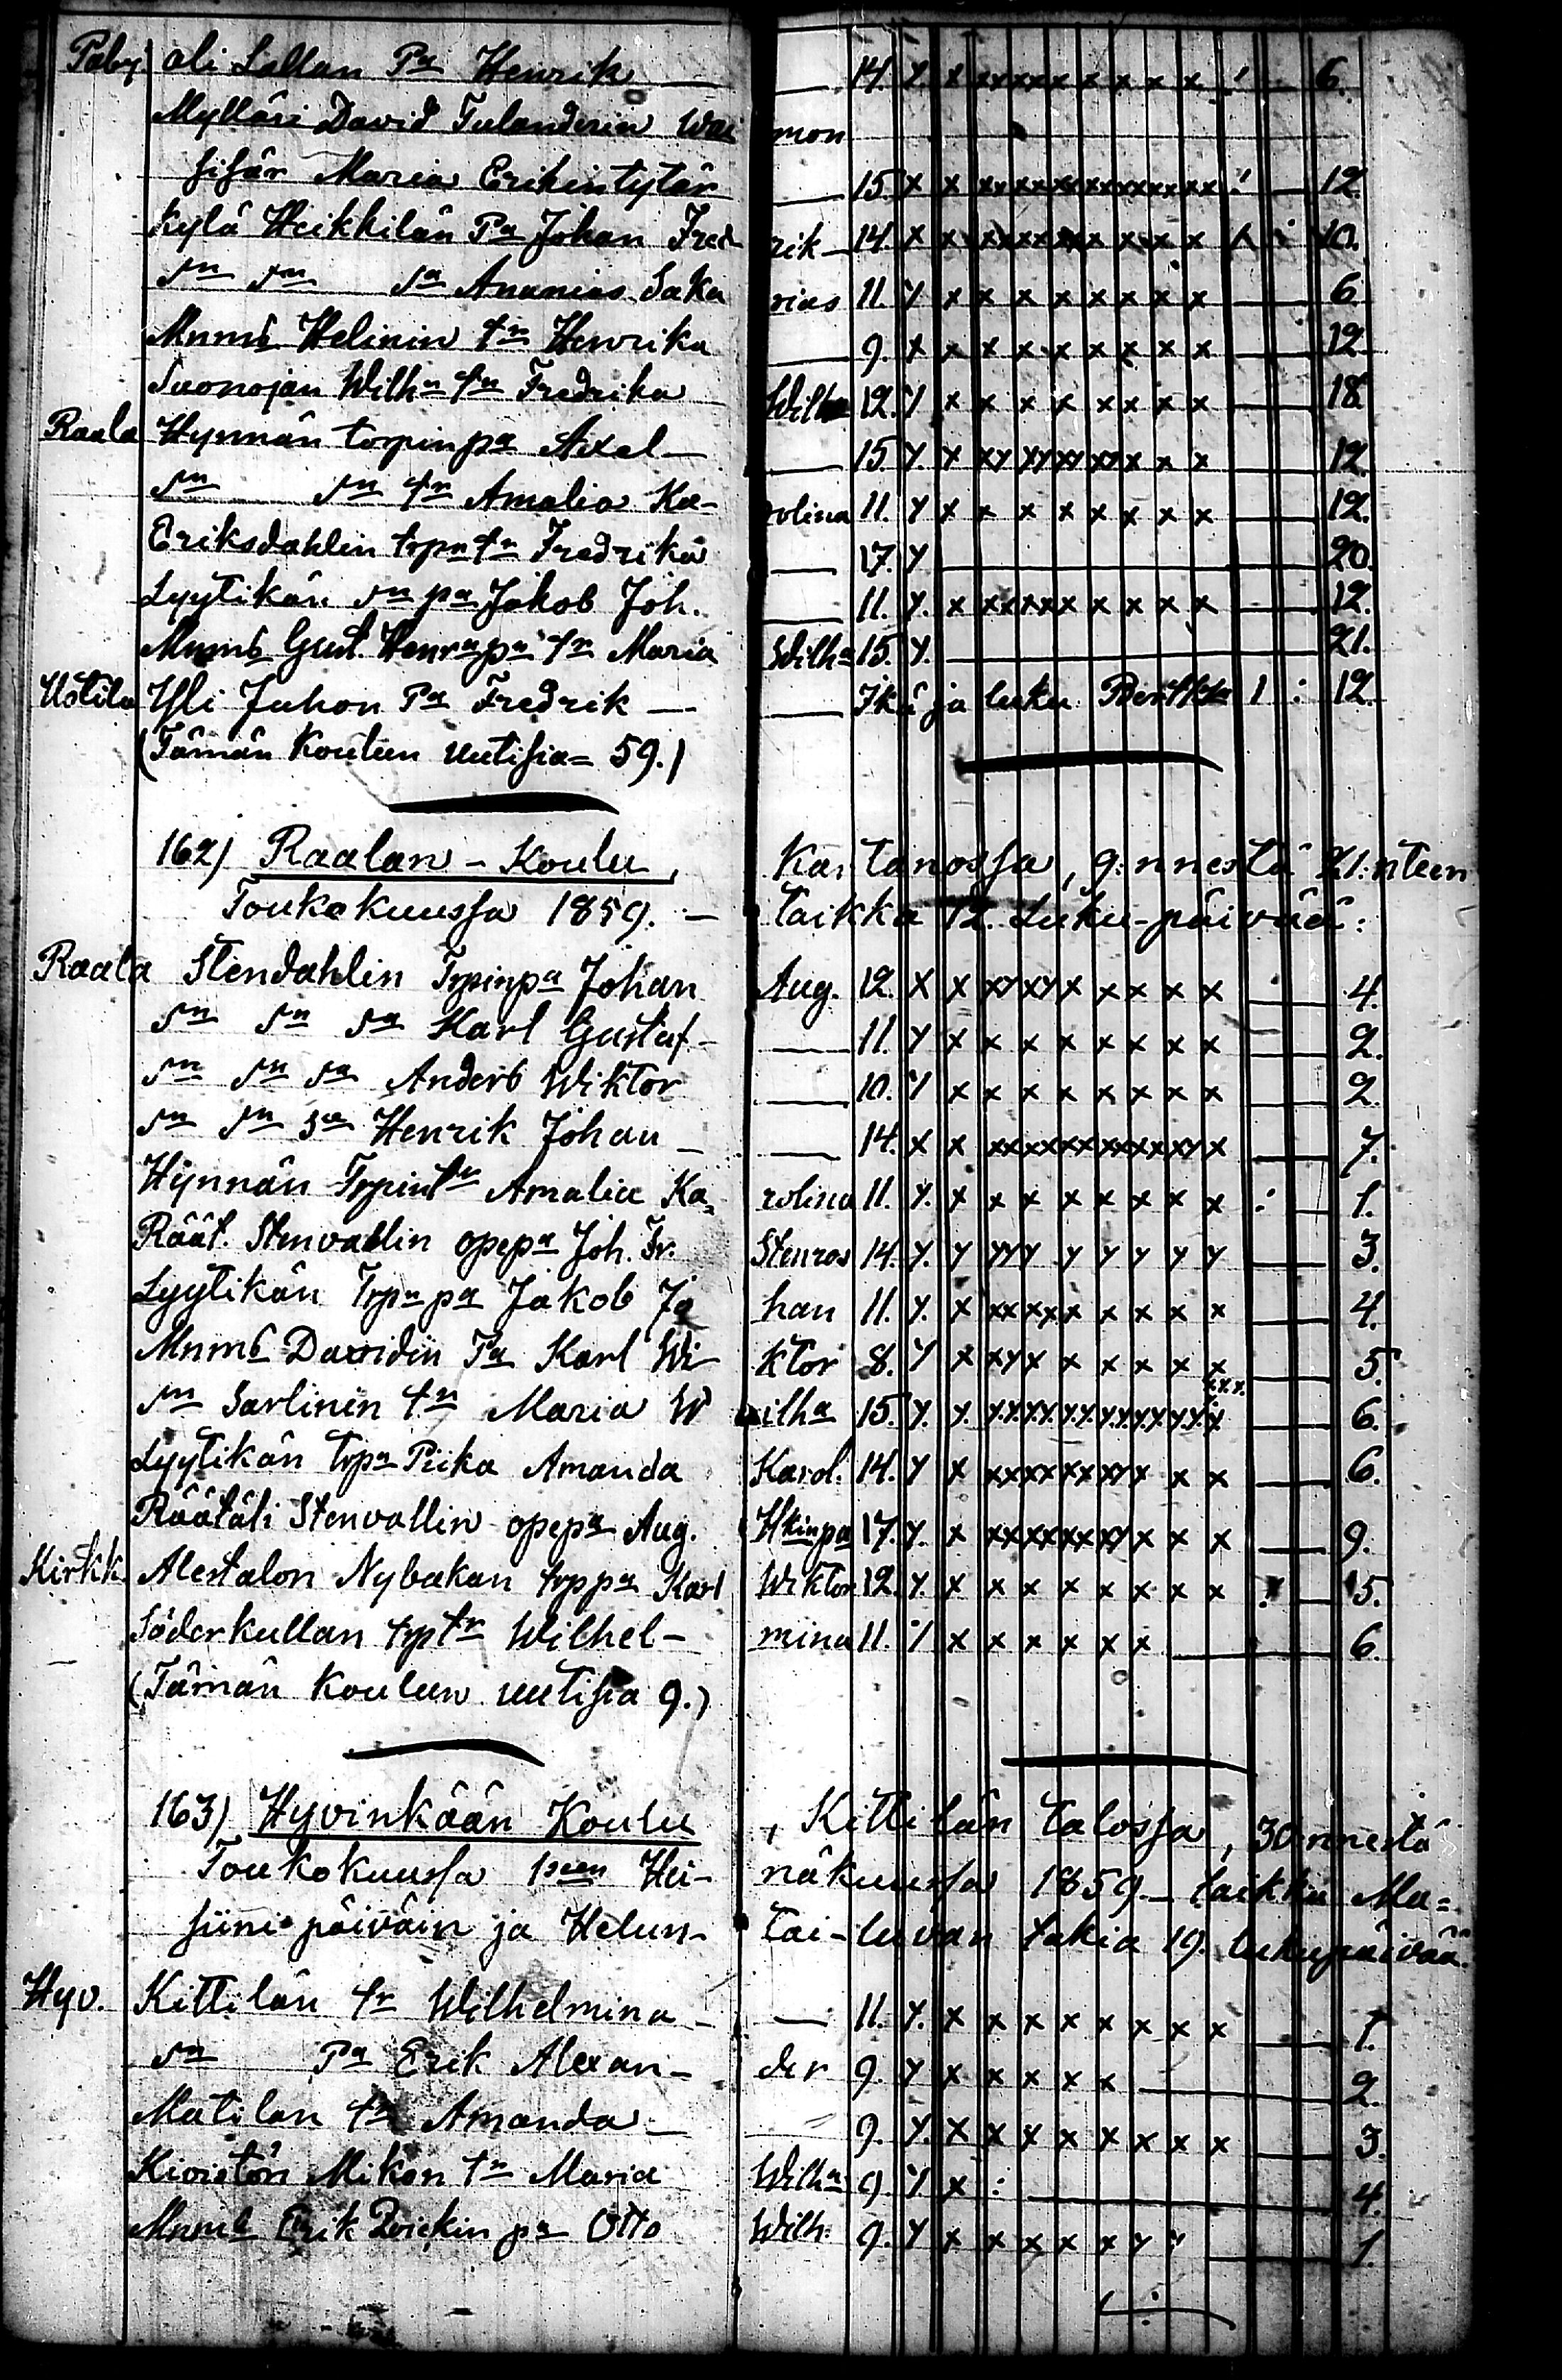 Paby. ali Lallan Pa Henrik — 14. y. x x x x x x x x x x 6.
Mylläri David Tulanderin wai mon
sisär Maria Erikintytär — 15. x x x x x x x x x x x x x x 12.
Kylä Heikkilän Pa Johan Fred rik — 14. x x x x x x x x x x 10.
sn sn sa Ananias Saka rias 11. y x x x x x x x x — 6
Mnms Helinin tr Henrika — 9. x x x x x x x x x — 12
Suonojan Wilhn tr Fredrika Wilha 12. y x x x x x x x x — 18
Raala Hynnän torpinpa Axel — 15. y. x xy xy xy xy x x x — 12.
sn sn tr Amalia Ka- rolina 11. y x x x x x x x x — 12.
Eriksdahlin trpn tr Fredrika — 17. y — 20
Lyytikän sn pa Jakob Joh. — 11. y. x x x x x x x x x x — 12.
Mnms Gust. Henrapa tr Maria Wilha 15. y. — 21.
Ustila Yli Juhon Pa Fredrik — Ikä ja luku 1 : 12
(Tämän Koulun uutisia = 59.)
162) Raalan - Koulu, Kartanossa, 9:nnestä 21:nteen
Toukokuussa 1859. — taikka 12. Luku-päivää:
Raala Stendahlin Trpinpa Johan Aug. 12. x x xy xy x x x x x 4.
sn sn sa Karl Gustaf — 11. y x x x x x x x x — 2.
sn sn sa Anders Wiktor — 10. y x x x x x x x x — 2.
sn sn sa Henrik Johan — 14. x x xx xx xx xx xx xy x — 7.
Hynnän Trpintr Amalia Ka- rolina 11. y. x x x x x x x x : — 1.
Räät. Stenvallin opepa Joh. Fr. Stenros 14. y. y yy y y y y y y — 3.
Lyytikän Trpn pa Jakob Jo han 11. y. x xx xx x x x x x — 4.
Mnms Davidin Pa Karl Wi- ktor 8. y x xy x x x x x x — 5.
sn Sarlinin tr Maria W ilha 15. y. y. y.y. y.y. y.y. y.y. y.y. y.y. x x.x.x. — 6.
Lyytikän trpn Piika Amanda Karol. 14. y x xx xx xx xy x x x — 6.
Räätäli Stenvallin opepa Aug. Hkinpa 17. y. x xx xx xx xy x x x — 9.
Kirkk. Alestalon Nybakan trppa Karl Wiktor 12. y. x x x x x x x x — 5.
Söderkullan trptr Wilhel- mina 11. y x x x x x x — 6.
(Tämän Koulun uutisia 9.)
163) Hyvinkään Koulu, Kittilän talossa, 30:nnestä
Toukokuussa 1seen Hei- näkuussa 1859. — taikka Ma=
siini päiväin ja Helun- tai-luvan takia 19. lukupäivää.
Hyv. Kittilän tr Wilhelmina — 11. y. x x x x x x x x — 1.
sn Pa Erik Alexan- der 9. y x x x x x — 2.
Matilan tr Amanda — 9. y. x x x x x x x x — 3.
Kivistön Mikon tr Maria Wilha 9 y x : — 4.
Mnms Erik pa Otto Wilh. 9. y x x x x x y y — 1.